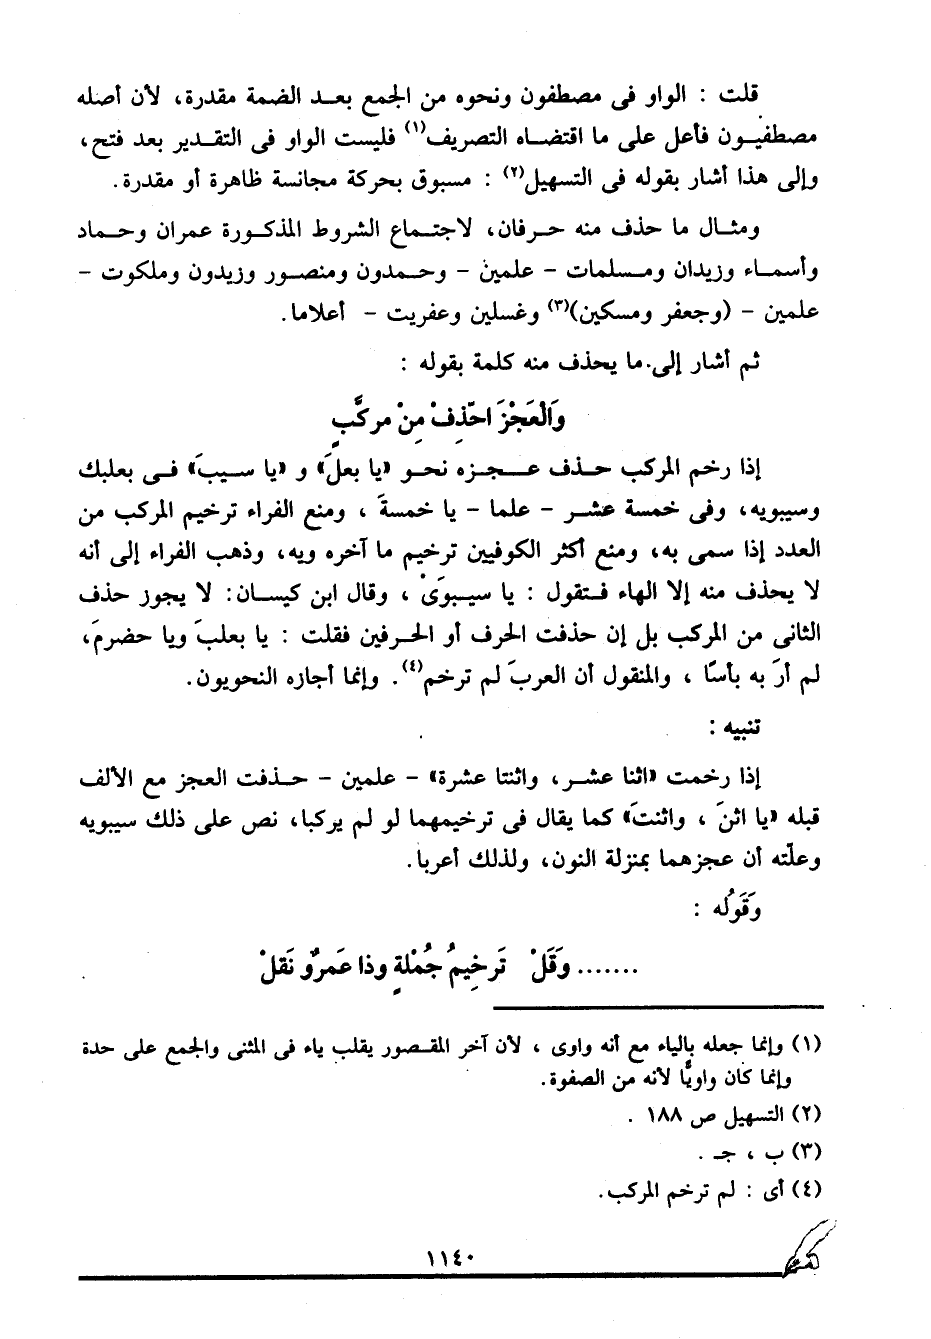 قلت : الواو فى مصطفون ونحوه من الجمع بعد الضمة مقدرة، لأن أصله
مصطفيون فأعل على ما اقتضاه التصريف(١) فليست الواو فى التقدير بعد فتح،
وإلى هذا أشار بقوله فى التسهيل(٢) : مسبوق بحركة مجانسة ظاهرة أو مقدرة.
ومثال ما حذف منه حرفان، لاجتماع الشروط المذكورة عمران وحماد
وأسماء وزيدان ومسلمات - علمين - وحمدون ومنصور وزيدون وملكوت -
علمين - (وجعفر ومسكين)(٣) وغسلين وعفريت - أعلاما.
ثم أشار إلى ما يحذف منه كلمة بقوله :
وَالْعَجْزَ احْذِفْ مِنْ مركَّبٍ
إذا رخم المركب حذف عجزه نحو «يا بعلَ» و «يا سيبَ» فى بعلبك
وسيبويه، وفى خمسة عشر - علما - يا خمسةَ ، ومنع الفراء ترخيم المركب من
العدد إذا سمى به، ومنع أكثر الكوفيين ترخيم ما آخره ويه، وذهب الفراء إلى أنه
لا يحذف منه إلا الهاء فتقول : يا سيبوَىْ ، وقال ابن كيسان: لا يجوز حذف
الثانى من المركب بل إن حذفت الحرف أو الحرفين فقلت : يا بعلبَ ويا حضرمَ،
لم أرَ به بأسًا ، والمنقول أن العربَ لم ترخم(٤). وإنما أجازه النحويون.
تنبيه :
إذا رخمت «اثنا عشر، واثنتا عشرة» - علمين - حذفت العجز مع الألف
قبله «يا اثنَ ، واثنتَ» كما يقال فى ترخيمهما لو لم يركبا، نص على ذلك سيبويه
وعلّته أن عجزهما بمنزلة النون، ولذلك أعربا.
وَقَولُه :
....... وقَلْ تَرخيمُ جُمْلةٍ وذا عَمرٌو نَقلْ
(١) وإنما جعله بالياء مع أنه واوى ، لأن آخر المقصور يقلب ياء فى المثنى والجمع على حدة
وإنما كان واويًّا لأنه من الصفوة.
(٢) التسهيل ص ١٨٨ .
(٣) ب ، جـ .
(٤) أى : لم ترخم المركب.
١١٤٠